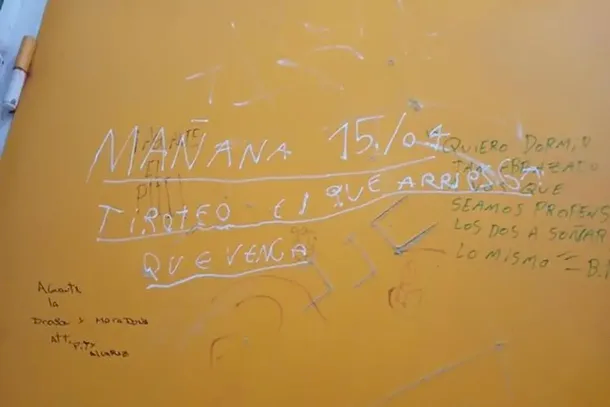 MAÑANA 15/04
TIROTEO EL QUE ARRIESGA
QUE VENGA
QUIERO DORMIR
TAN ABRAZADO
QUE
SEAMOS PROPENS
LOS DOS A SOÑAR
LO MISMO - B.
Aguante
la
Droga y Maradona
Att:
Pity
Alvarez